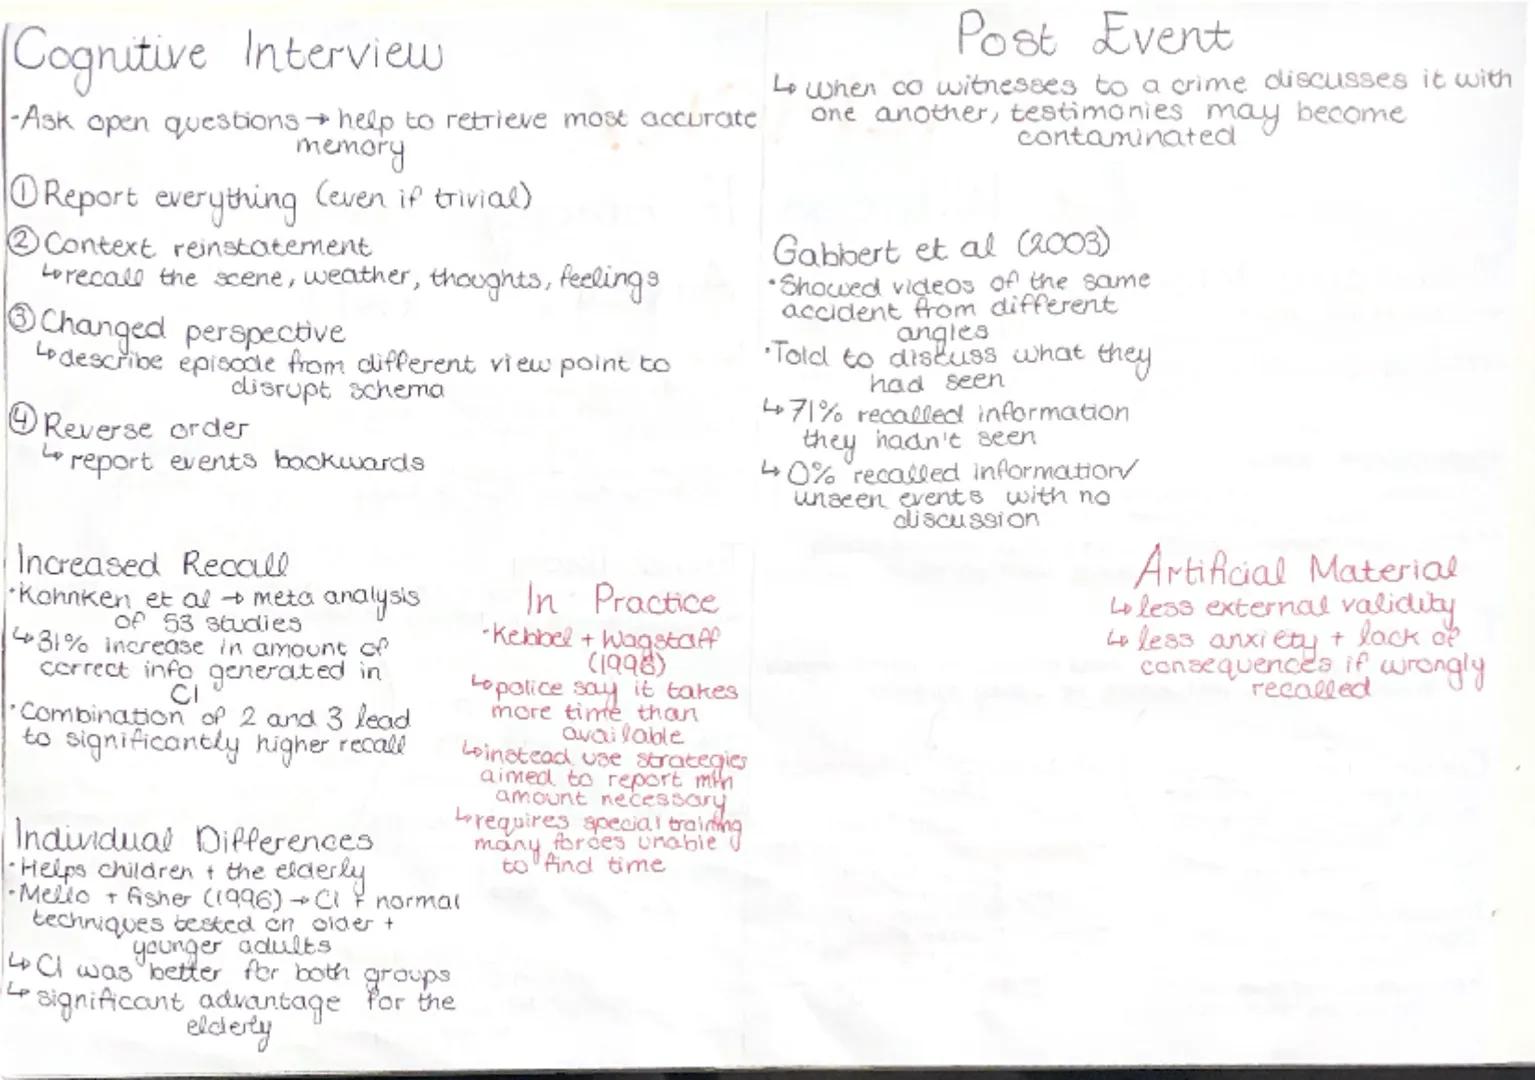 Cognitive Interview
-Ask open questions → help to retrieve most accurate
memory
① Report everything (even if trivial)
② Context reinstatement
↳ recall the scene, weather, thoughts, feelings
③ Changed perspective
↳ describe episode from different view point to
disrupt schema
④ Reverse order
↳ report events backwards
Increased Recall
·Kohnken et al → meta analysis
of 53 studies
↳ 31% increase in amount of
correct info generated in
CI
·Combination of 2 and 3 lead
to significantly higher recall
Individual Differences
·Helps children + the elderly
·Mello + fisher (1996) → CI + normal
techniques tested on older +
younger adults
↳ CI was better for both groups
↳ significant advantage for the
elderly
In Practice
·Kebbel + Wagstaff
(1996)
↳ police say it takes
more time than
available
↳ instead use strategies
aimed to report min
amount necessary
↳ requires special training
many forces unable
to find time
Post Event
↳ when co witnesses to a crime discusses it with
one another, testimonies may become
contaminated
Gabbert et al (2003)
·Showed videos of the same
accident from different
angles
·Told to discuss what they
had seen
↳ 71% recalled information
they hadn't seen
↳ 0% recalled information/
unseen events with no
discussion
Artificial Material
↳ less external validity
↳ less anxiety + lack of
consequences if wrongly
recalled